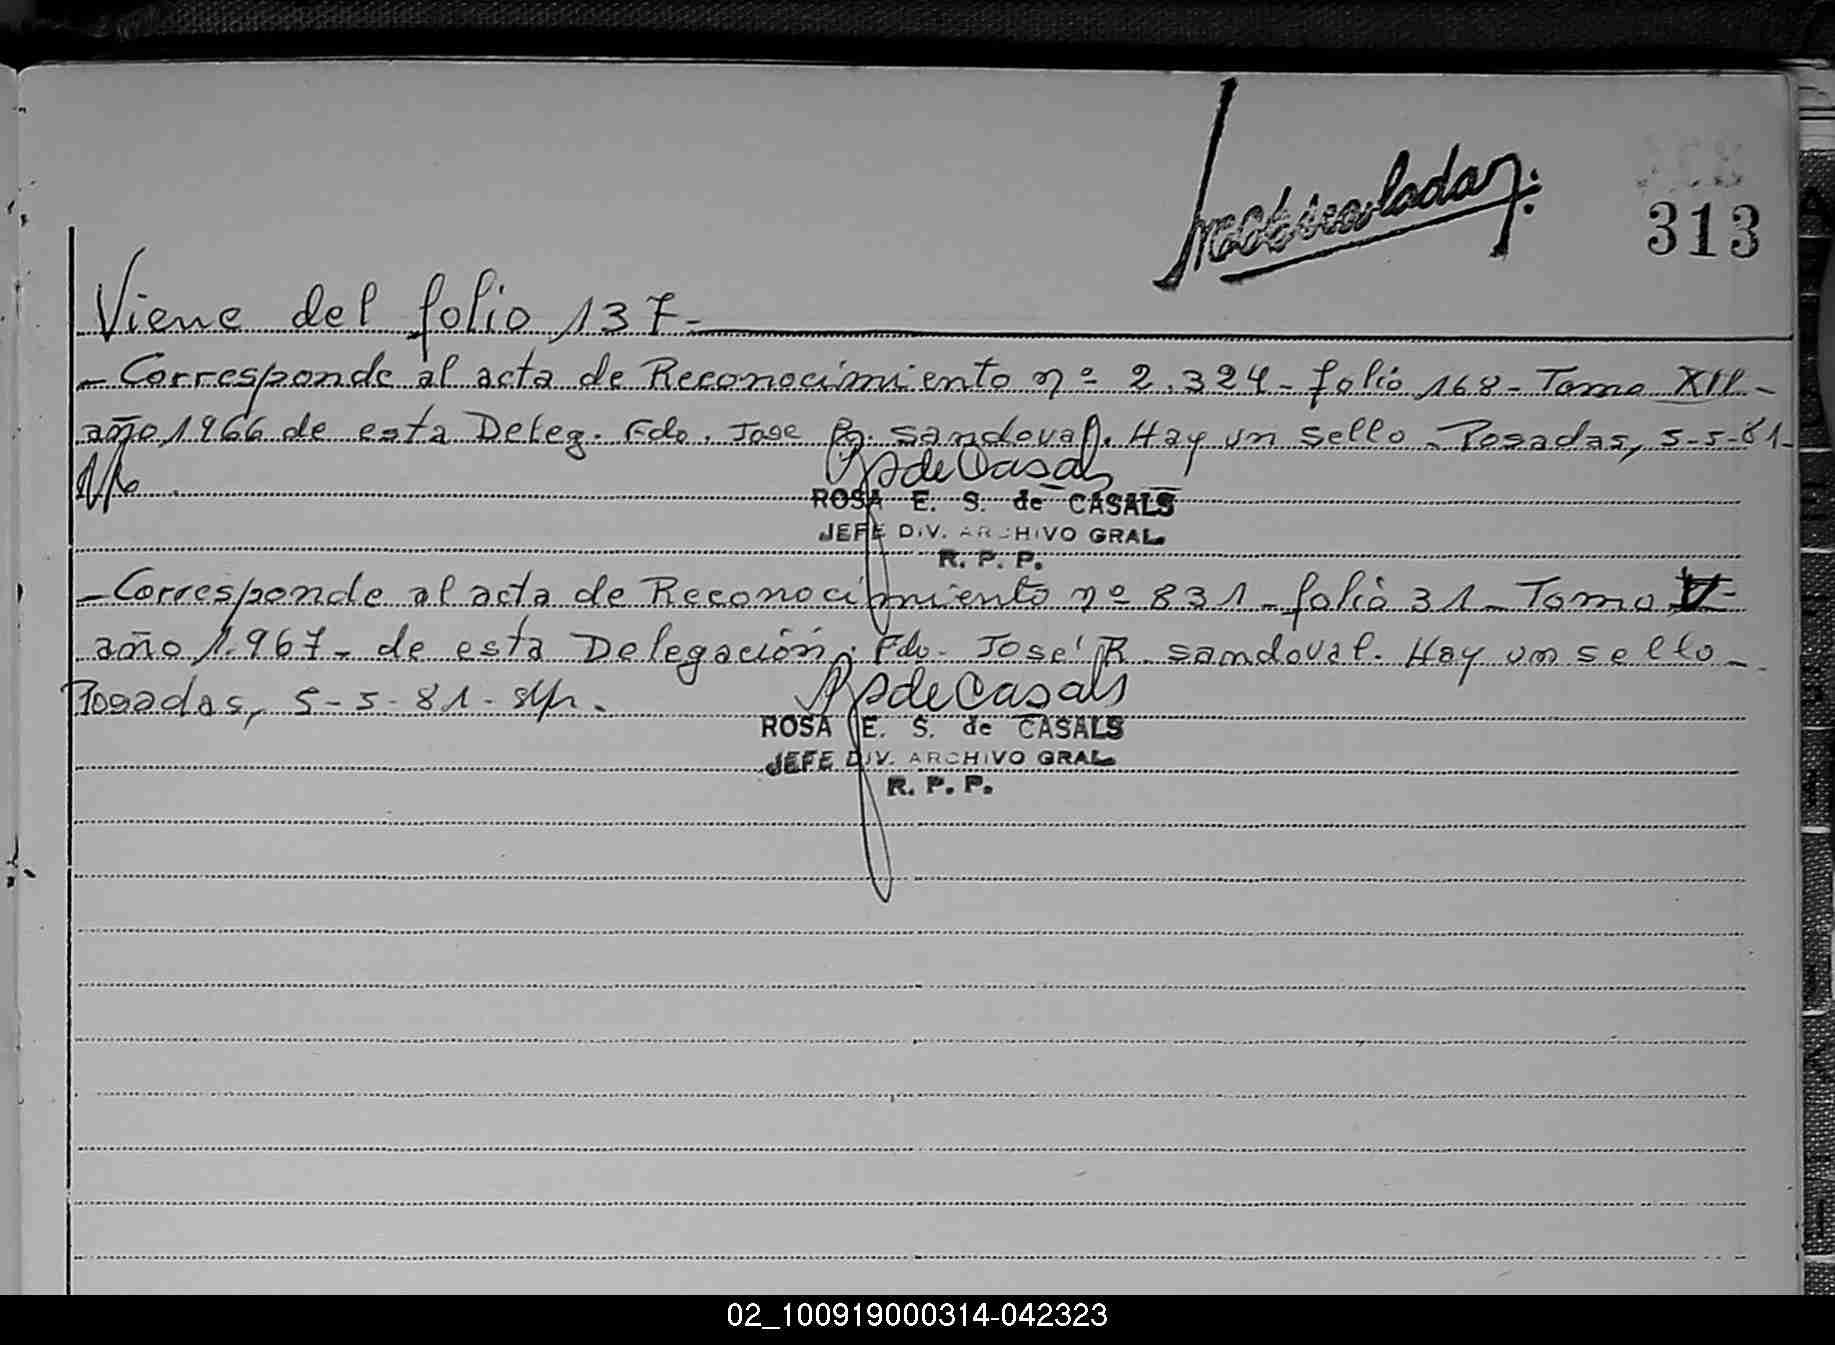 313
Viene del folio 137-
- Corresponde al acta de Reconocimiento nº 2.324- folio 168- Tomo XII-
año 1966 de esta Deleg. Fdo. Jose R. Sandoval. Hay un sello - Posadas, 5-5-81-
RSdeCasals
ROSA E. S. de CASALS
JEFE DIV. ARCHIVO GRAL.
R. P. P.
- Corresponde al acta de Reconocimiento nº 831- folio 31- Tomo V-
año 1.967- de esta Delegación. Fdo. José R. Sandoval. Hay un sello-
Posadas, 5-5-81-
RSdeCasals
ROSA E. S. de CASALS
JEFE DIV. ARCHIVO GRAL.
R. P. P.
02_100919000314-042323